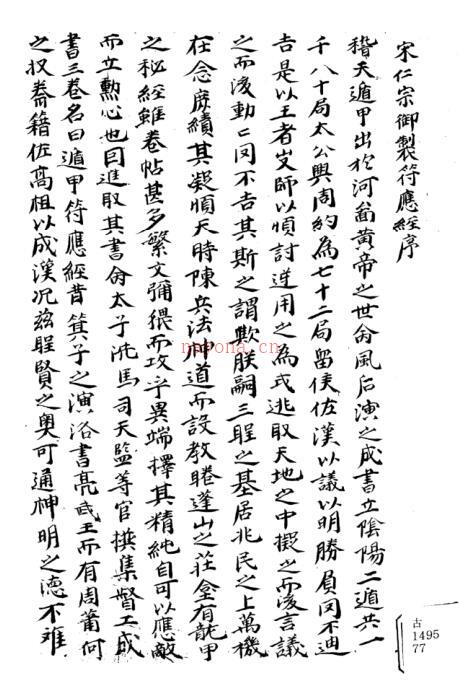 宋仁宗御製符應經序
稽夫遁甲出於河啚黃帝之世命風后演之成書立陰陽二遁共一
千八十局太公興周約為七十二局留侯佐漢以議以明勝負罔不迪
吉是以王者出師以順討逆用之為式逃取天地之中擬之而後言議
之而後動亡罔不吉其斯之謂歟朕嗣三聖之基居兆民之上萬機
在念庶績其凝順天時陳兵法神道而設教睠蓬山之莊金有龍甲
之秘經雖卷帖甚多繁文彌猥而攻乎異端擇其精純自可以應敵
而立勳也因進取其書命太子洗馬司天監等官撰集督工成
書三卷名曰遁甲符應經昔箕子之演洛書亮武王而有周蕭何
之収秦籍佐高祖以成漢况茲聖賢之奧可通神明之德不難
古
1495
77
nayona.cn